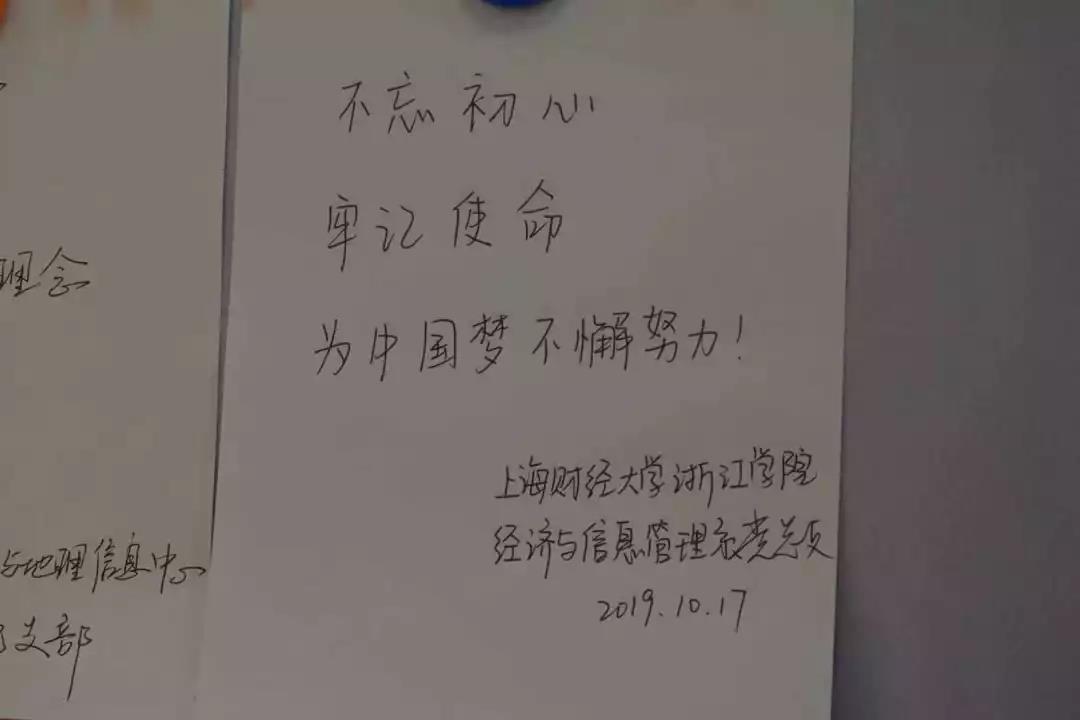 不忘初心
牢记使命
为中国梦不懈努力！
上海财经大学浙江学院
经济与信息管理系党总支
2019.10.17
理念
与地理信息中心
支部